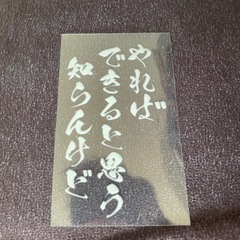 やれば
できると思う
知らんけど